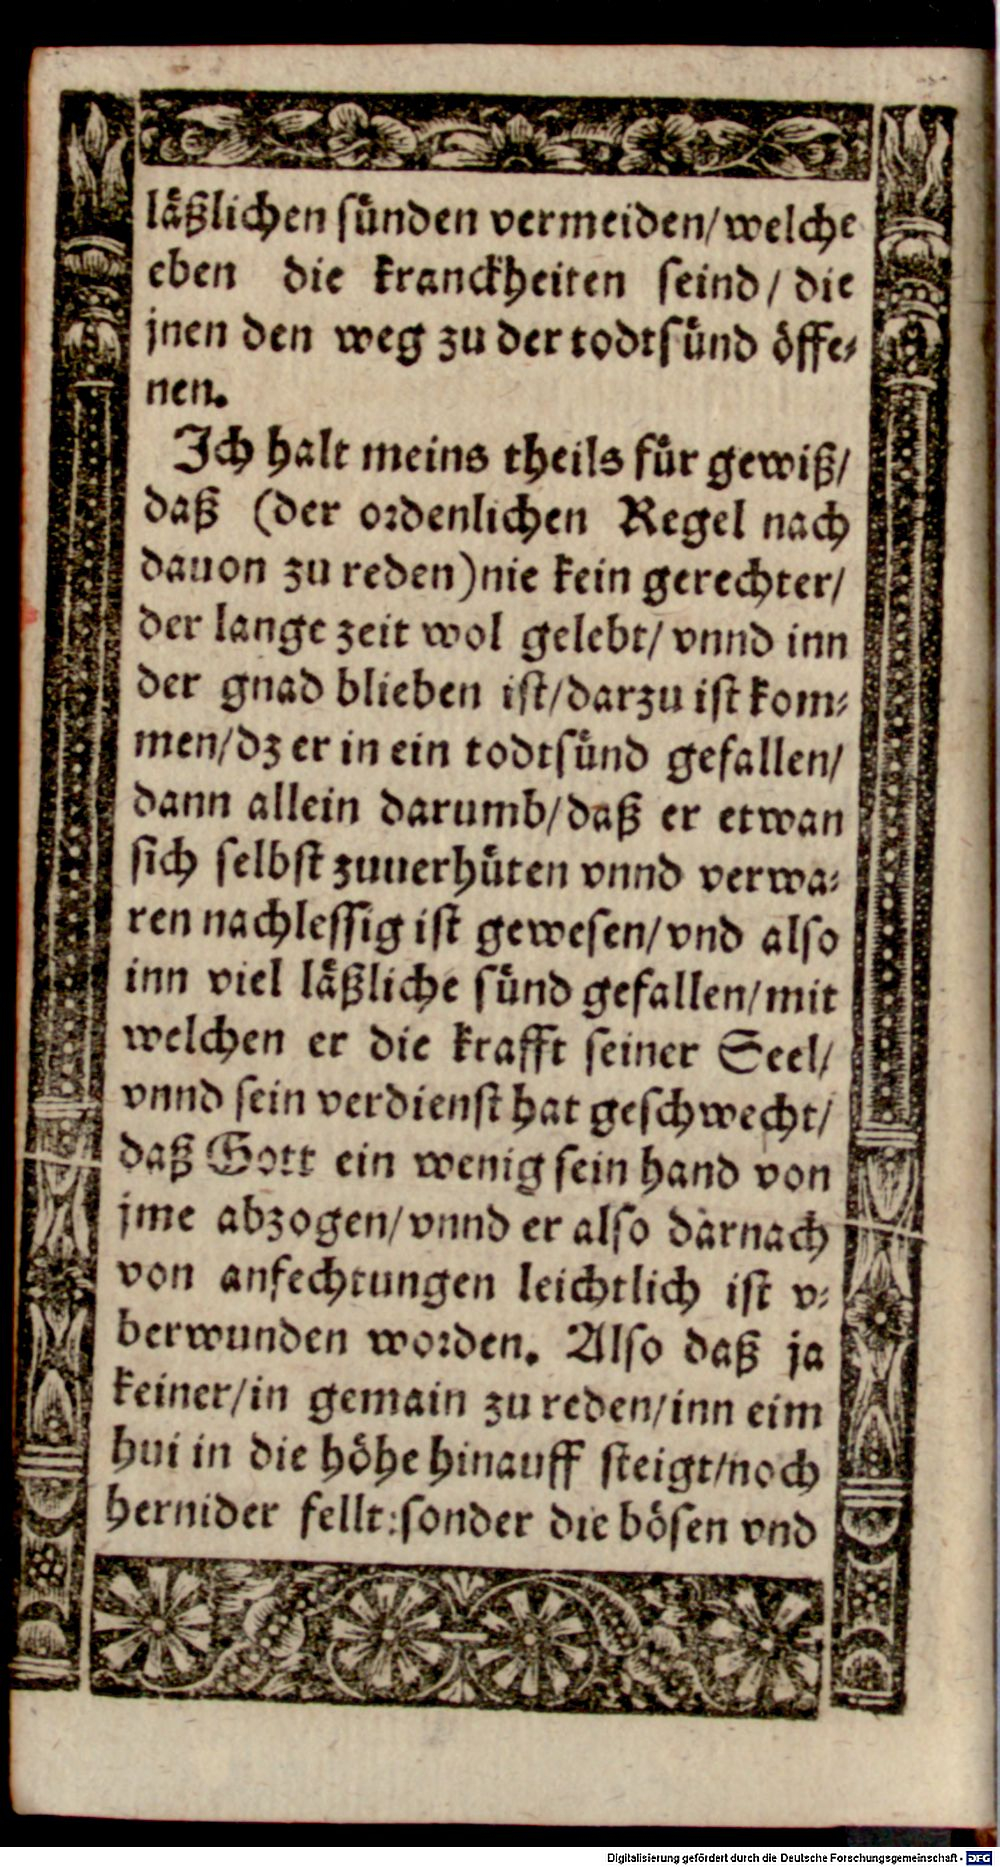 läßlichen sünden vermeiden/welche
eben die kranckheiten seind/ die
jnen den weg zu der todtsünd öffe-
nen.
Ich halt meins theils für gewiß/
daß (der ordenlichen Regel nach
dauon zu reden)nie kein gerechter/
der lange zeit wol gelebt/ vnnd inn
der gnad blieben ist/darzu ist kom-
men/dz er in ein todtsünd gefallen/
dann allein darumb/daß er etwan
sich selbst zuuerhüten vnnd verwa-
ren nachlessig ist gewesen/vnd also
inn viel läßliche sünd gefallen/mit
welchen er die krafft seiner Seel/
vnnd sein verdienst hat geschwecht/
daß Gott ein wenig sein hand von
jme abzogen/vnnd er also darnach
von anfechtungen leichtlich ist v-
berwunden worden. Also daß ja
keiner/in gemain zu reden/inn eim
hui in die höhe hinauff steigt/noch
hernider fellt:sonder die bösen vnd
Digitalisierung gefördert durch die Deutsche Forschungsgemeinschaft - DFG